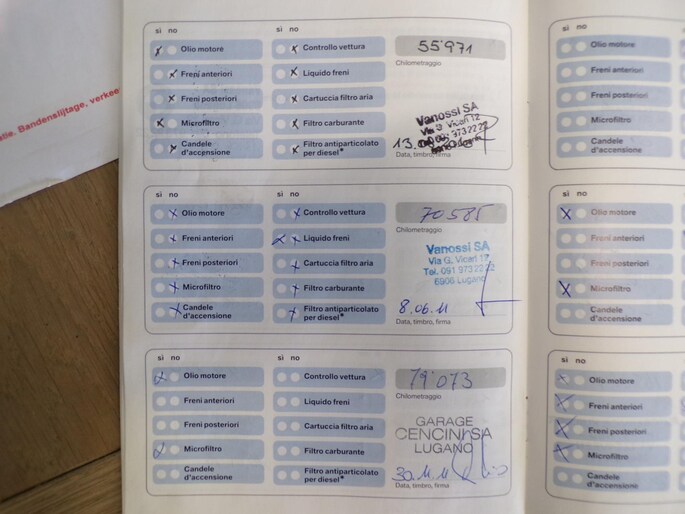 elie. Bandenslijtage, verkee
sì no
Olio motore
Freni anteriori
Freni posteriori
Microfiltro
Candele
d'accensione
sì no
Controllo vettura
Liquido freni
Cartuccia filtro aria
Filtro carburante
Filtro antiparticolato
per diesel*
55'971
Chilometraggio
Vanossi SA
Via G. Vicari 12
Data, timbro, firma
sì no
Olio motore
Freni anteriori
Freni posteriori
Microfiltro
Candele
d'accensione
sì no
Controllo vettura
Liquido freni
Cartuccia filtro aria
Filtro carburante
Filtro antiparticolato
per diesel*
70'585
Chilometraggio
Vanossi SA
Via G. Vicari 12
Tel. 091 973 22 22
6906 Lugano
8.06.11
Data, timbro, firma
sì no
Olio motore
Freni anteriori
Freni posteriori
Microfiltro
Candele
d'accensione
sì no
Controllo vettura
Liquido freni
Cartuccia filtro aria
Filtro carburante
Filtro antiparticolato
per diesel*
79'073
Chilometraggio
GARAGE
CENCINI SA
LUGANO
30.11.11
Data, timbro, firma
sì no
Olio motore
Freni anteriori
Freni posteriori
Microfiltro
Candele
d'accensione
sì no
Olio motore
Freni anteriori
Freni posteriori
Microfiltro
Candele
d'accensione
sì no
Olio motore
Freni anteriori
Freni posteriori
Microfiltro
Candele
d'accensione